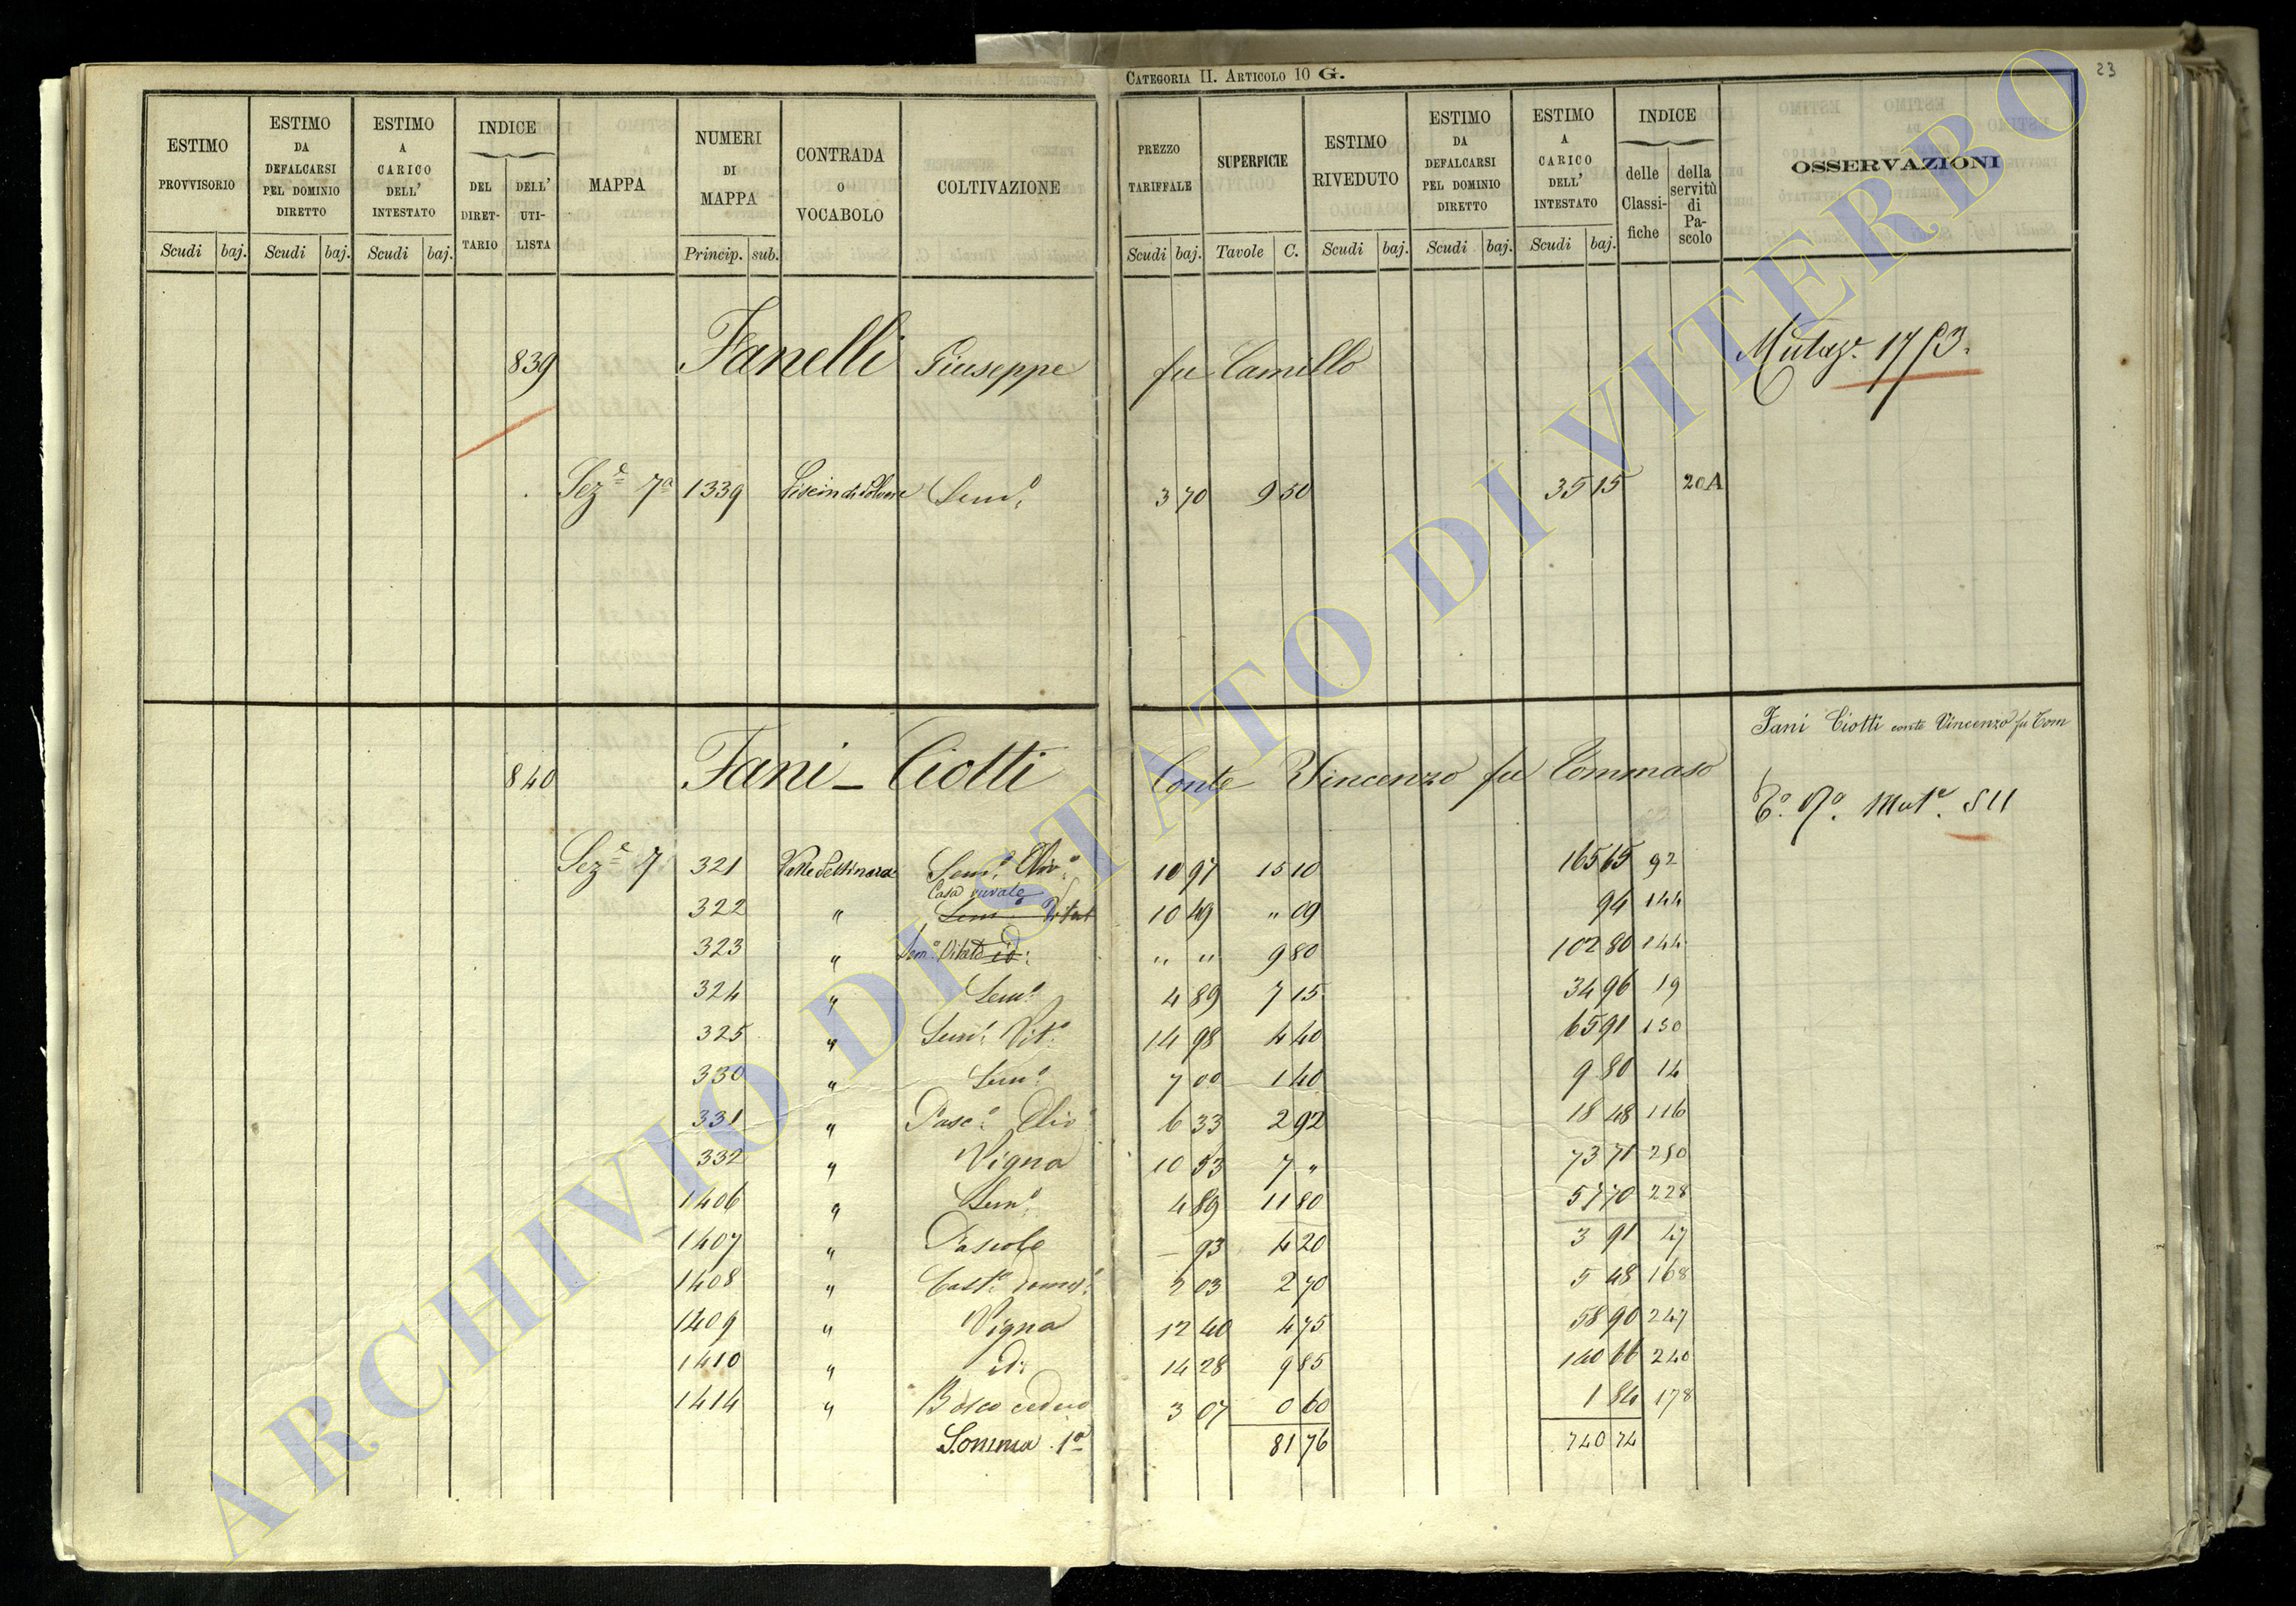 CATEGORIA II. ARTICOLO 10 G.
23
ESTIMO PROVVISORIO Scudi baj. ESTIMO DA DEFALCARSI PEL DOMINIO DIRETTO Scudi baj. ESTIMO A CARICO DELL' INTESTATO Scudi baj. INDICE DEL DIRETTARIO DELL' UTILISTA MAPPA NUMERI DI MAPPA Princip. sub. CONTRADA O VOCABOLO COLTIVAZIONE
PREZZO TARIFFALE Scudi baj. SUPERFICIE Tavole C. ESTIMO RIVEDUTO Scudi baj. ESTIMO DA DEFALCARSI PEL DOMINIO DIRETTO Scudi baj. ESTIMO A CARICO DELL' INTESTATO Scudi baj. INDICE delle Classifiche della servitù di Pascolo OSSERVAZIONI
839 Fanelli Giuseppe fu Camillo
Seze 7a 1339 Semo 3 70 9 50 35 15 20A
840 Fani - Ciotti Conte Vincenzo fu Tommaso Fani Ciotti conte Vincenzo fu Tom
Seze 7 321 Semo Olivo 10 97 15 10 165 65 92
Casa rurale
322 " Semo Vitat 10 49 " 09 94 144
323 " Semo Vitato id: " " 9 80 102 80 144
324 " Semo 4 89 7 15 34 96 19
325 " Semo Vito 14 98 4 40 65 91 130
330 " Semo 7 00 1 40 9 80 14
331 " Pasco Olivo 6 33 2 92 18 48 116
332 " Vigna 10 53 7 " 73 71 250
1406 " Semo 4 89 11 80 57 70 228
1407 " Pascolo — 93 4 20 3 91 47
1408 " 2 03 2 70 5 48 168
1409 " Vigna 12 40 4 75 58 90 247
1410 " id: 14 28 9 85 140 66 240
1414 " Bosco ceduo 3 07 0 60 1 84 178
Somma 1a 81 76 740 74
ARCHIVIO DI STATO DI VITERBO